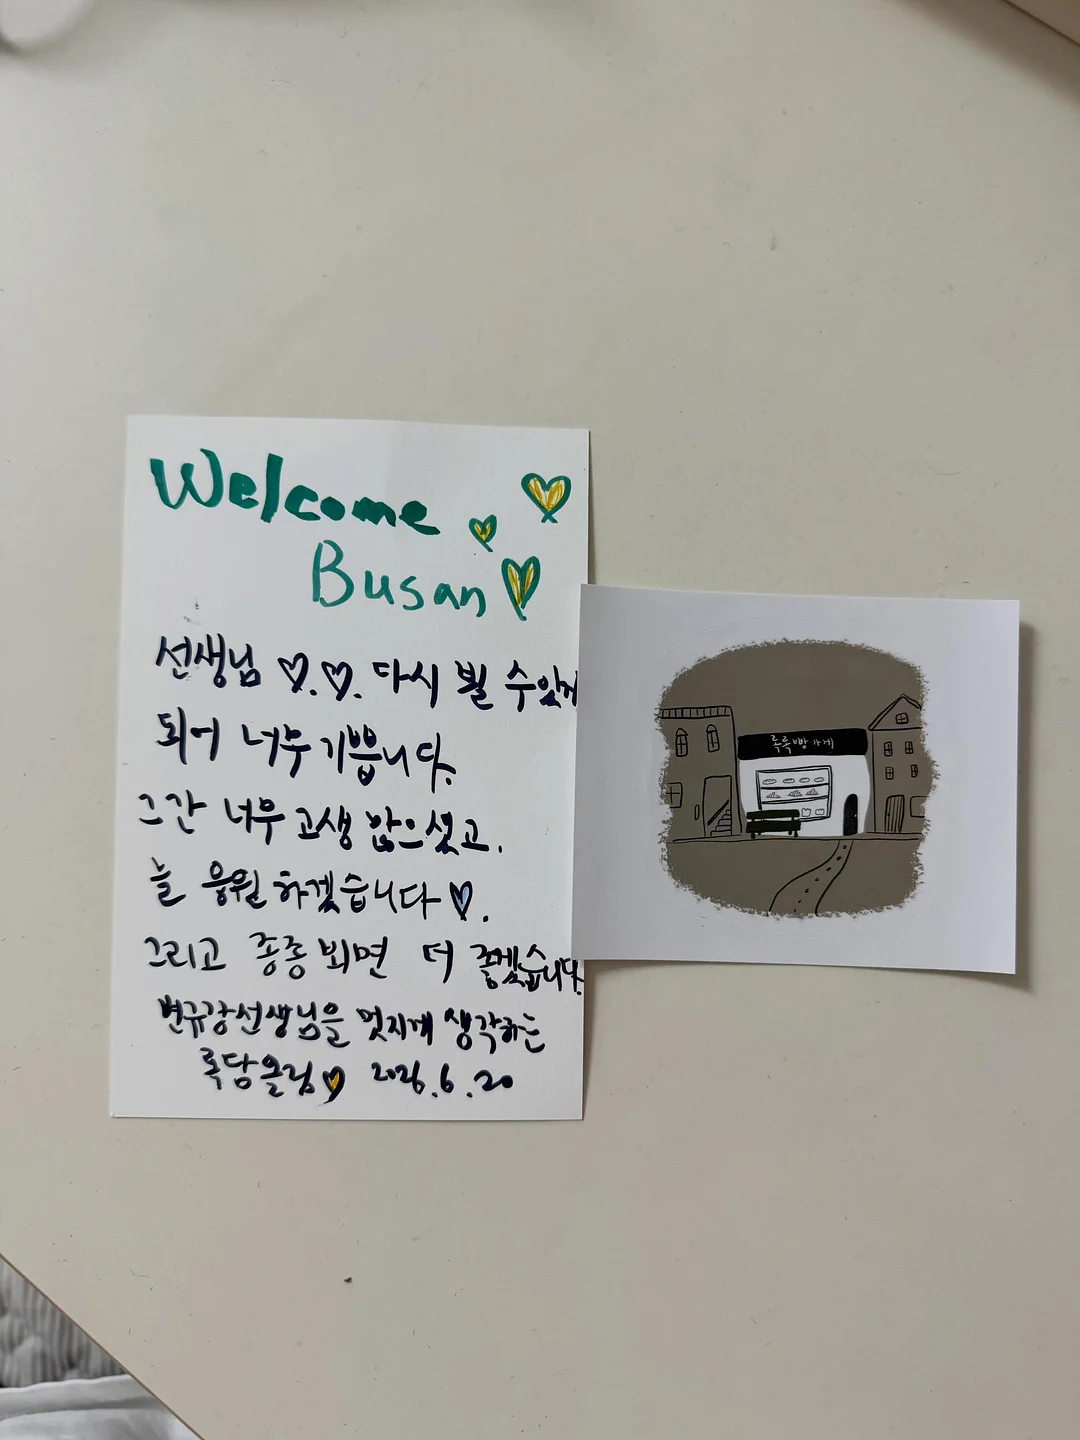 Welcome
Busan
선생님 ♡.♡. 다시 뵐 수있게
되어 너무 기쁩니다.
그간 너무 고생 많으셨고,
늘 응원 하겠습니다♡.
그리고 종종 뵈면 더 좋겠습니다.
변규강선생님을 멋지게 생각하는
록담올림♡ 2026.6.20
룩룩빵가게